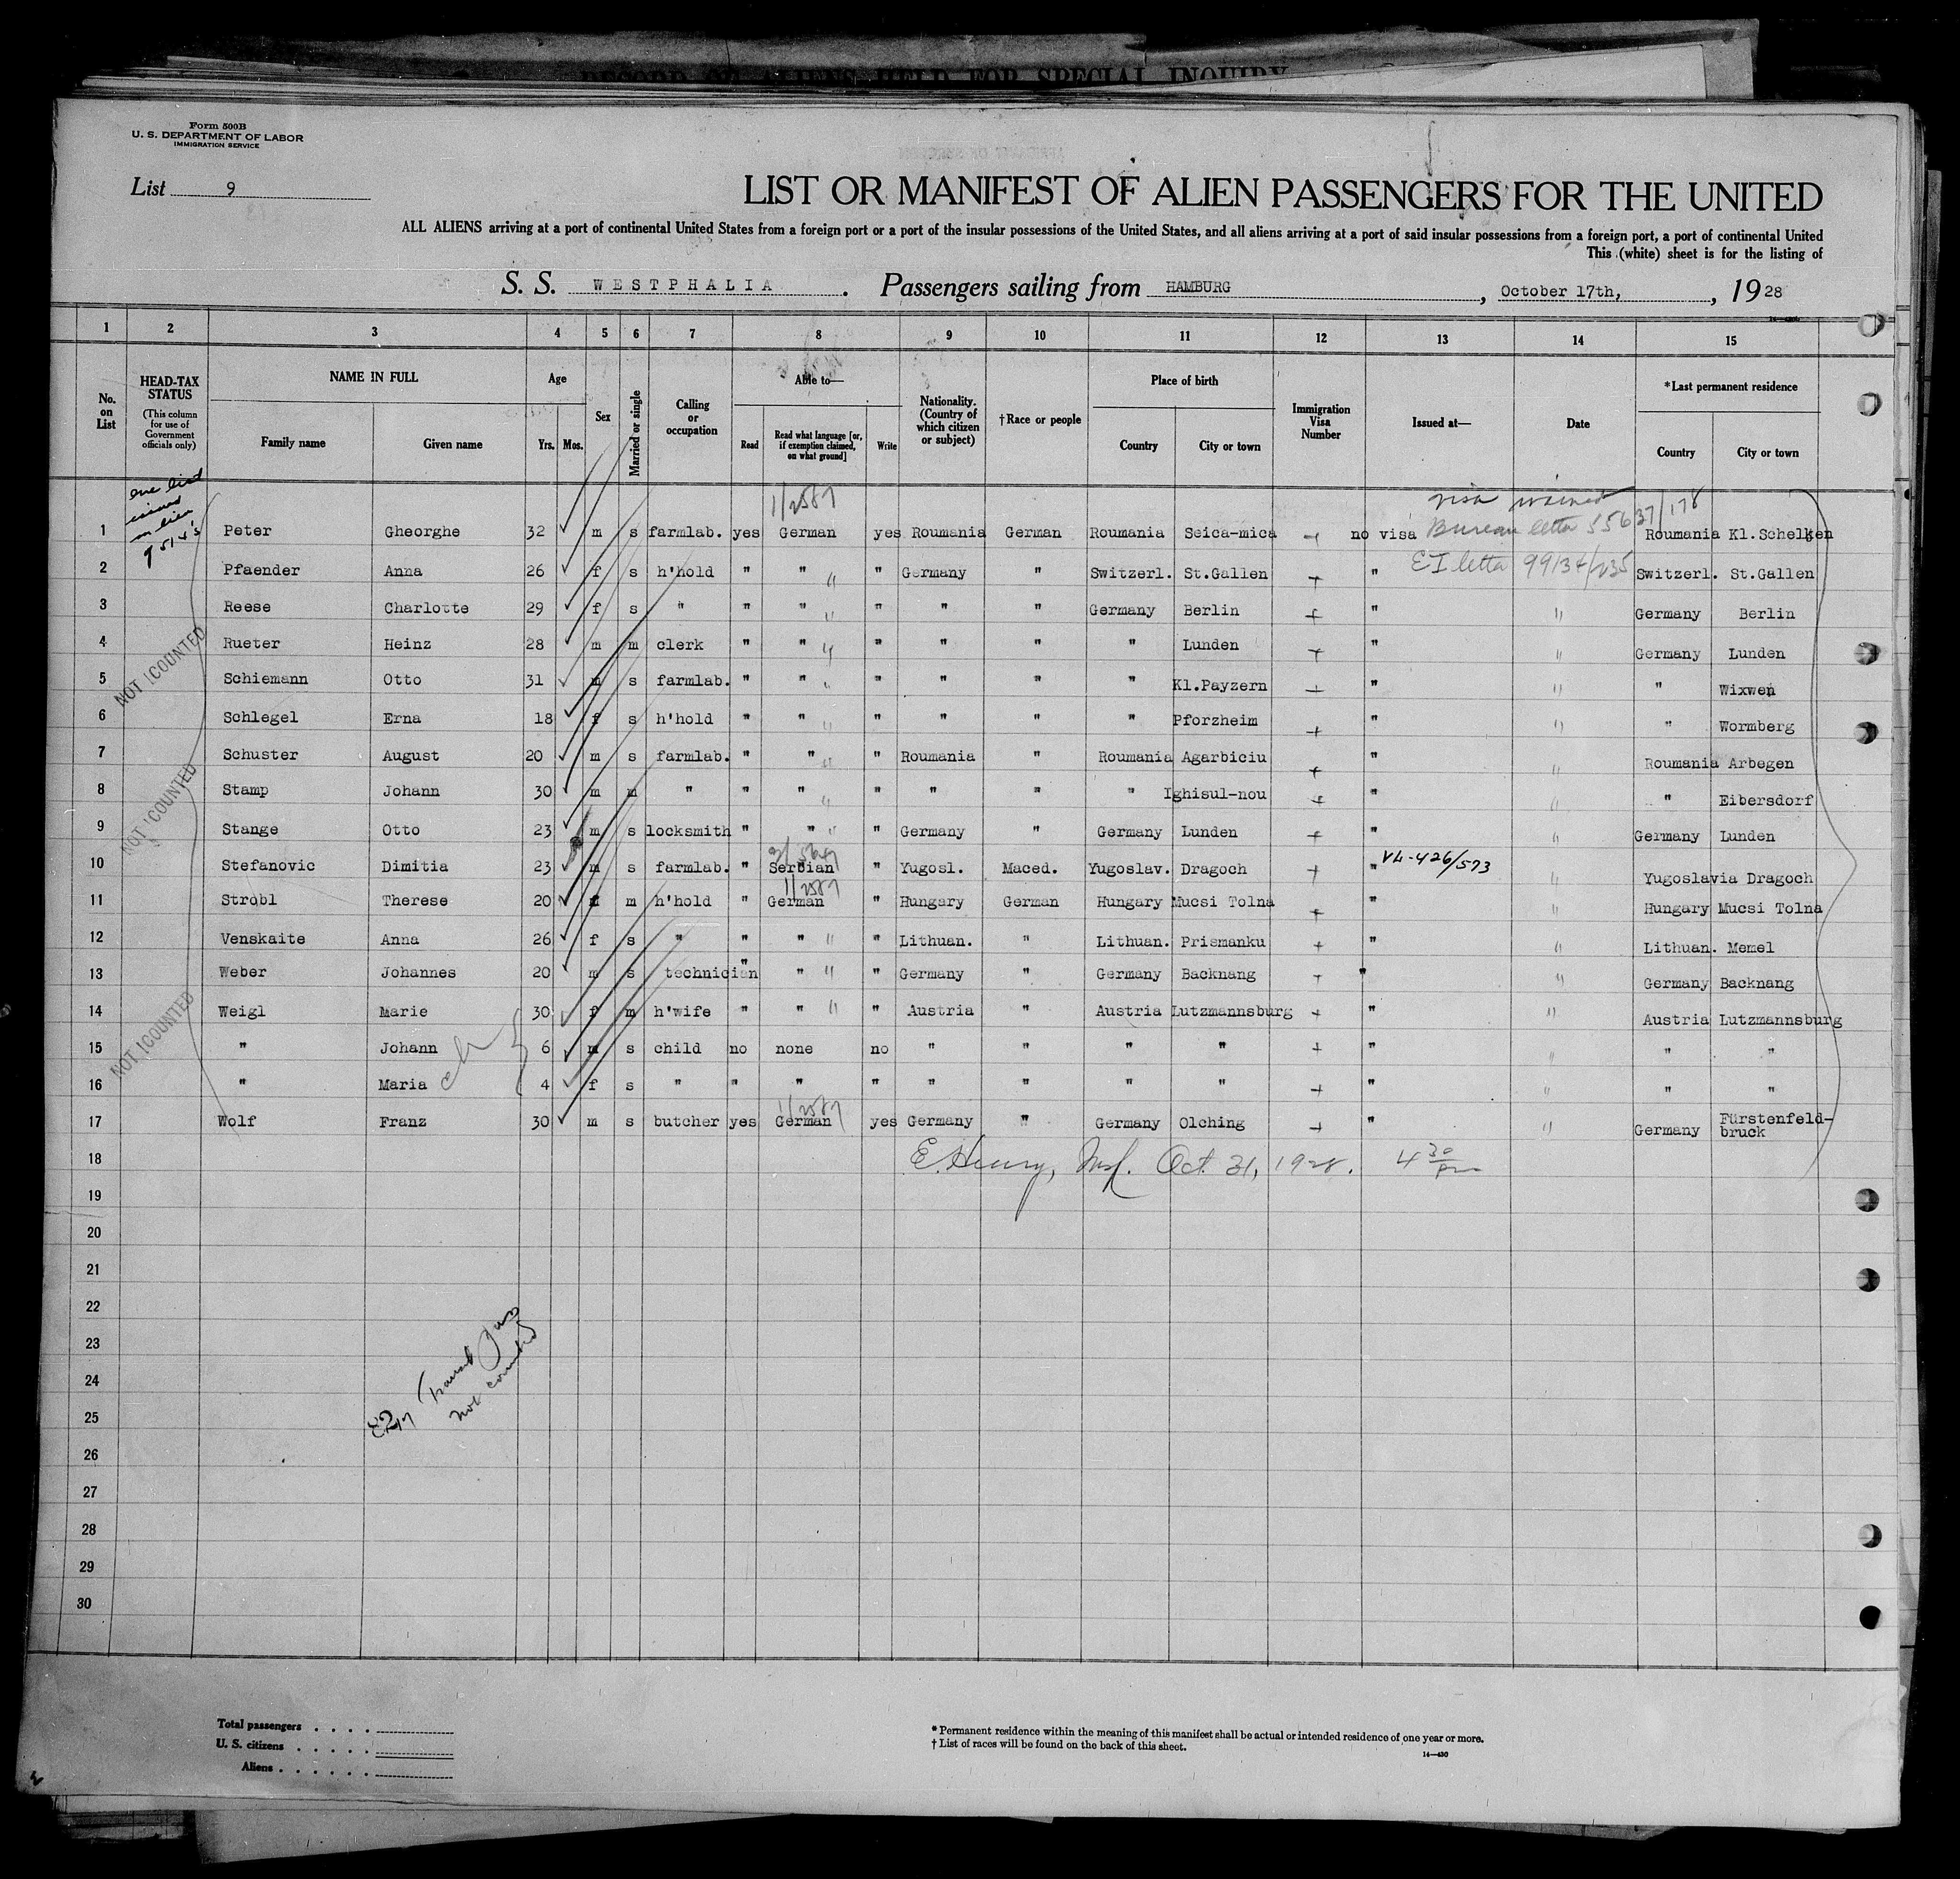 RECORD OF ALIENS HELD FOR SPECIAL INQUIRY
Form 500B
U. S. DEPARTMENT OF LABOR
IMMIGRATION SERVICE
List 9
LIST OR MANIFEST OF ALIEN PASSENGERS FOR THE UNITED
ALL ALIENS arriving at a port of continental United States from a foreign port or a port of the insular possessions of the United States, and all aliens arriving at a port of said insular possessions from a foreign port, a port of continental United
This (white) sheet is for the listing of
S. S. WESTPHALIA. Passengers sailing from HAMBURG, October 17th, , 1928
1 2 3 4 5 6 7 8 9 10 11 12 13 14 15
No. on List
HEAD-TAX STATUS
(This column for use of Government officials only)
NAME IN FULL
Family name Given name
Age
Yrs. Mos.
Sex
Married or single
Calling or occupation
Able to—
Read
Read what language [or, if exemption claimed, on what ground]
Write
Nationality. (Country of which citizen or subject)
†Race or people
Place of birth
Country City or town
Immigration Visa Number
Issued at—
Date
*Last permanent residence
Country City or town
visa waived
Bureau letter 55637/178
EI letter 99134/235
1 Peter Gheorghe 32 m s farmlab. yes German yes Roumania German Roumania Seica-mica no visa Roumania Kl.Schelken
2 Pfaender Anna 26 f s h'hold " " " Germany " Switzerl. St.Gallen " Switzerl. St.Gallen
3 Reese Charlotte 29 f s " " " " " " Germany Berlin " " Germany Berlin
4 Rueter Heinz 28 m m clerk " " " " " " Lunden " " Germany Lunden
5 Schiemann Otto 31 m s farmlab. " " " " " " Kl.Payzern " " " Wixwen
6 Schlegel Erna 18 f s h'hold " " " " " " Pforzheim " " " Wormberg
7 Schuster August 20 m s farmlab. " " " Roumania " Roumania Agarbiciu " " Roumania Arbegen
8 Stamp Johann 30 m m " " " " " " " Ighisul-nou " " " Eibersdorf
9 Stange Otto 23 m s locksmith " " " Germany " Germany Lunden " " Germany Lunden
10 Stefanovic Dimitia 23 m s farmlab. " Serbian " Yugosl. Maced. Yugoslav. Dragoch " VL-426/573 " Yugoslavia Dragoch
11 Strobl Therese 20 f m h'hold " German " Hungary German Hungary Mucsi Tolna " " Hungary Mucsi Tolna
12 Venskaite Anna 26 f s " " " " Lithuan. " Lithuan. Prismanku " " Lithuan. Memel
13 Weber Johannes 20 m s technician " " " Germany " Germany Backnang " " Germany Backnang
14 Weigl Marie 30 f m h'wife " " " Austria " Austria Lutzmannsburg " " Austria Lutzmannsburg
15 " Johann 6 m s child no none no " " " " " " " "
16 " Maria 4 f s " " " " " " " " " " " "
17 Wolf Franz 30 m s butcher yes German yes Germany " Germany Olching " " Germany Fürstenfeld-
bruck
18 E. Henry, Oct. 31, 1928. 4 30 pm
19
20
21
22
23
24
25
26
27
28
29
30
NOT COUNTED
NOT COUNTED
NOT COUNTED
not counted
Total passengers . . . .
U. S. citizens . . . . .
Aliens . . . . . .
* Permanent residence within the meaning of this manifest shall be actual or intended residence of one year or more.
† List of races will be found on the back of this sheet.
14—430